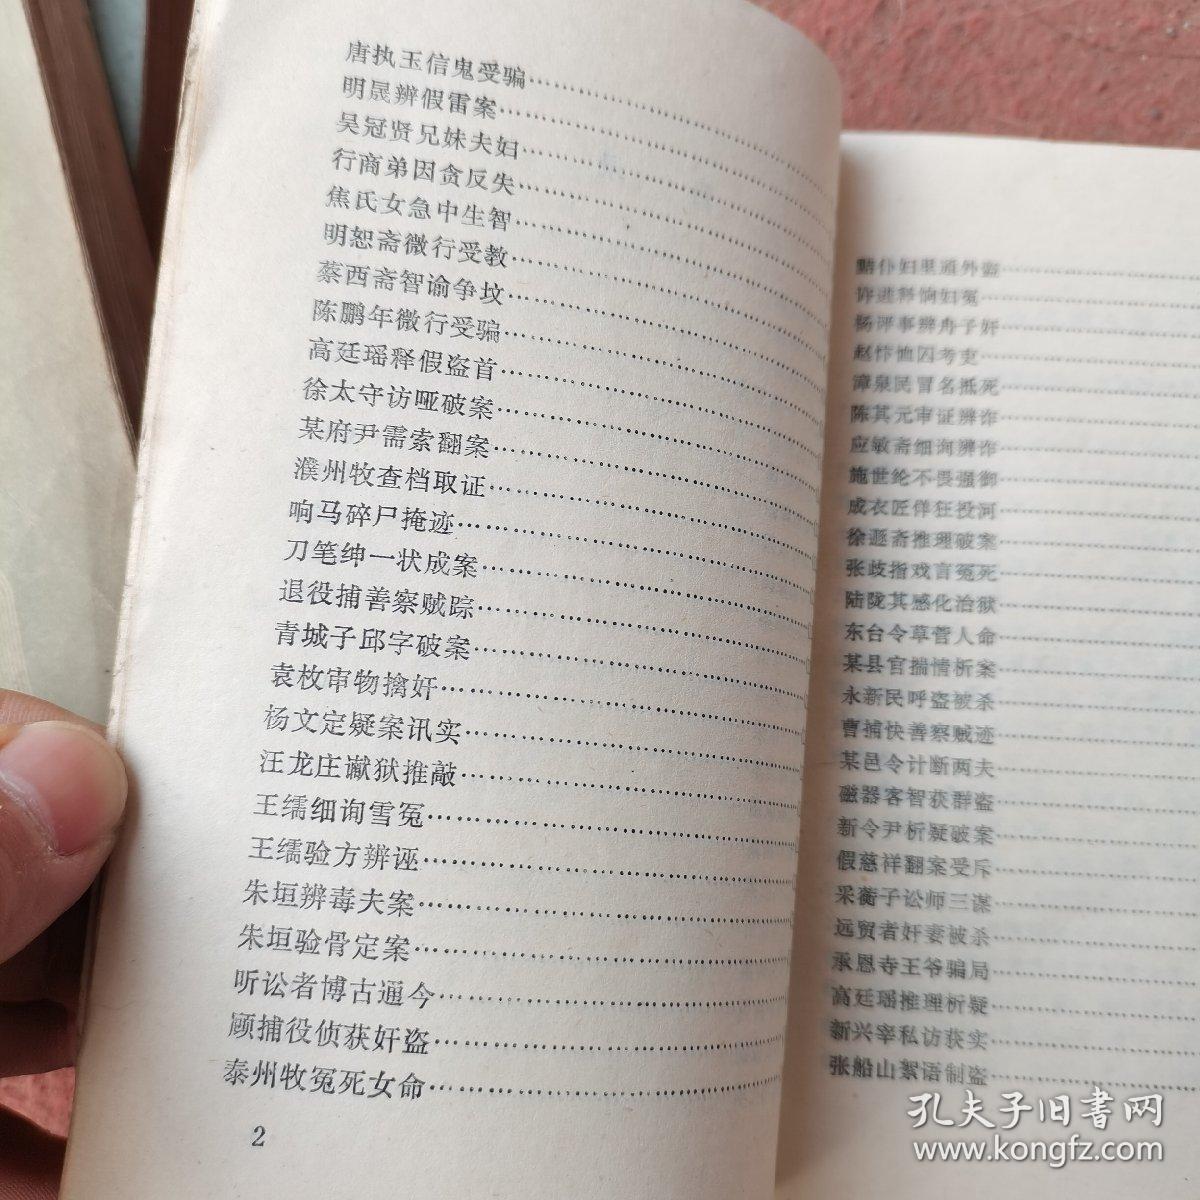 唐执玉信鬼受骗
明晟辨假雷案
吴冠贤兄妹夫妇
行商弟因贪反失
焦氏女急中生智
明恕斋微行受教
蔡西斋智谕争坟
陈鹏年微行受骗
高廷瑶释假盗首
徐太守访哑破案
某府尹需索翻案
濮州牧查档取证
响马碎尸掩迹
刀笔绅一状成案
退役捕善察贼踪
青城子邱字破案
袁枚审物擒奸
杨文定疑案讯实
汪龙庄谳狱推敲
王繻细询雪冤
王繻验方辨诬
朱垣辨毒夫案
朱垣验骨定案
听讼者博古通今
顾捕役侦获奸盗
泰州牧冤死女命
2
黠仆妇里通外盗
许进释饷妇冤
杨评事辨舟子奸
赵忭恤囚考吏
漳泉民冒名抵死
陈其元审证辨诈
应敏斋细询辨诈
施世纶不畏强御
成衣匠佯狂投河
徐遯斋推理破案
张歧指戏言冤死
陆陇其感化治狱
东台令草菅人命
某县官揣情析案
永新民呼盗被杀
曹捕快善察贼迹
某邑令计断两夫
磁器客智获群盗
新令尹析疑破案
假慈祥翻案受斥
采蘅子讼师三谋
远贸者奸妻被杀
承恩寺王爷骗局
高廷瑶推理析疑
新兴宰私访获实
张船山絮语制盗
孔夫子旧书网
www.kongfz.com